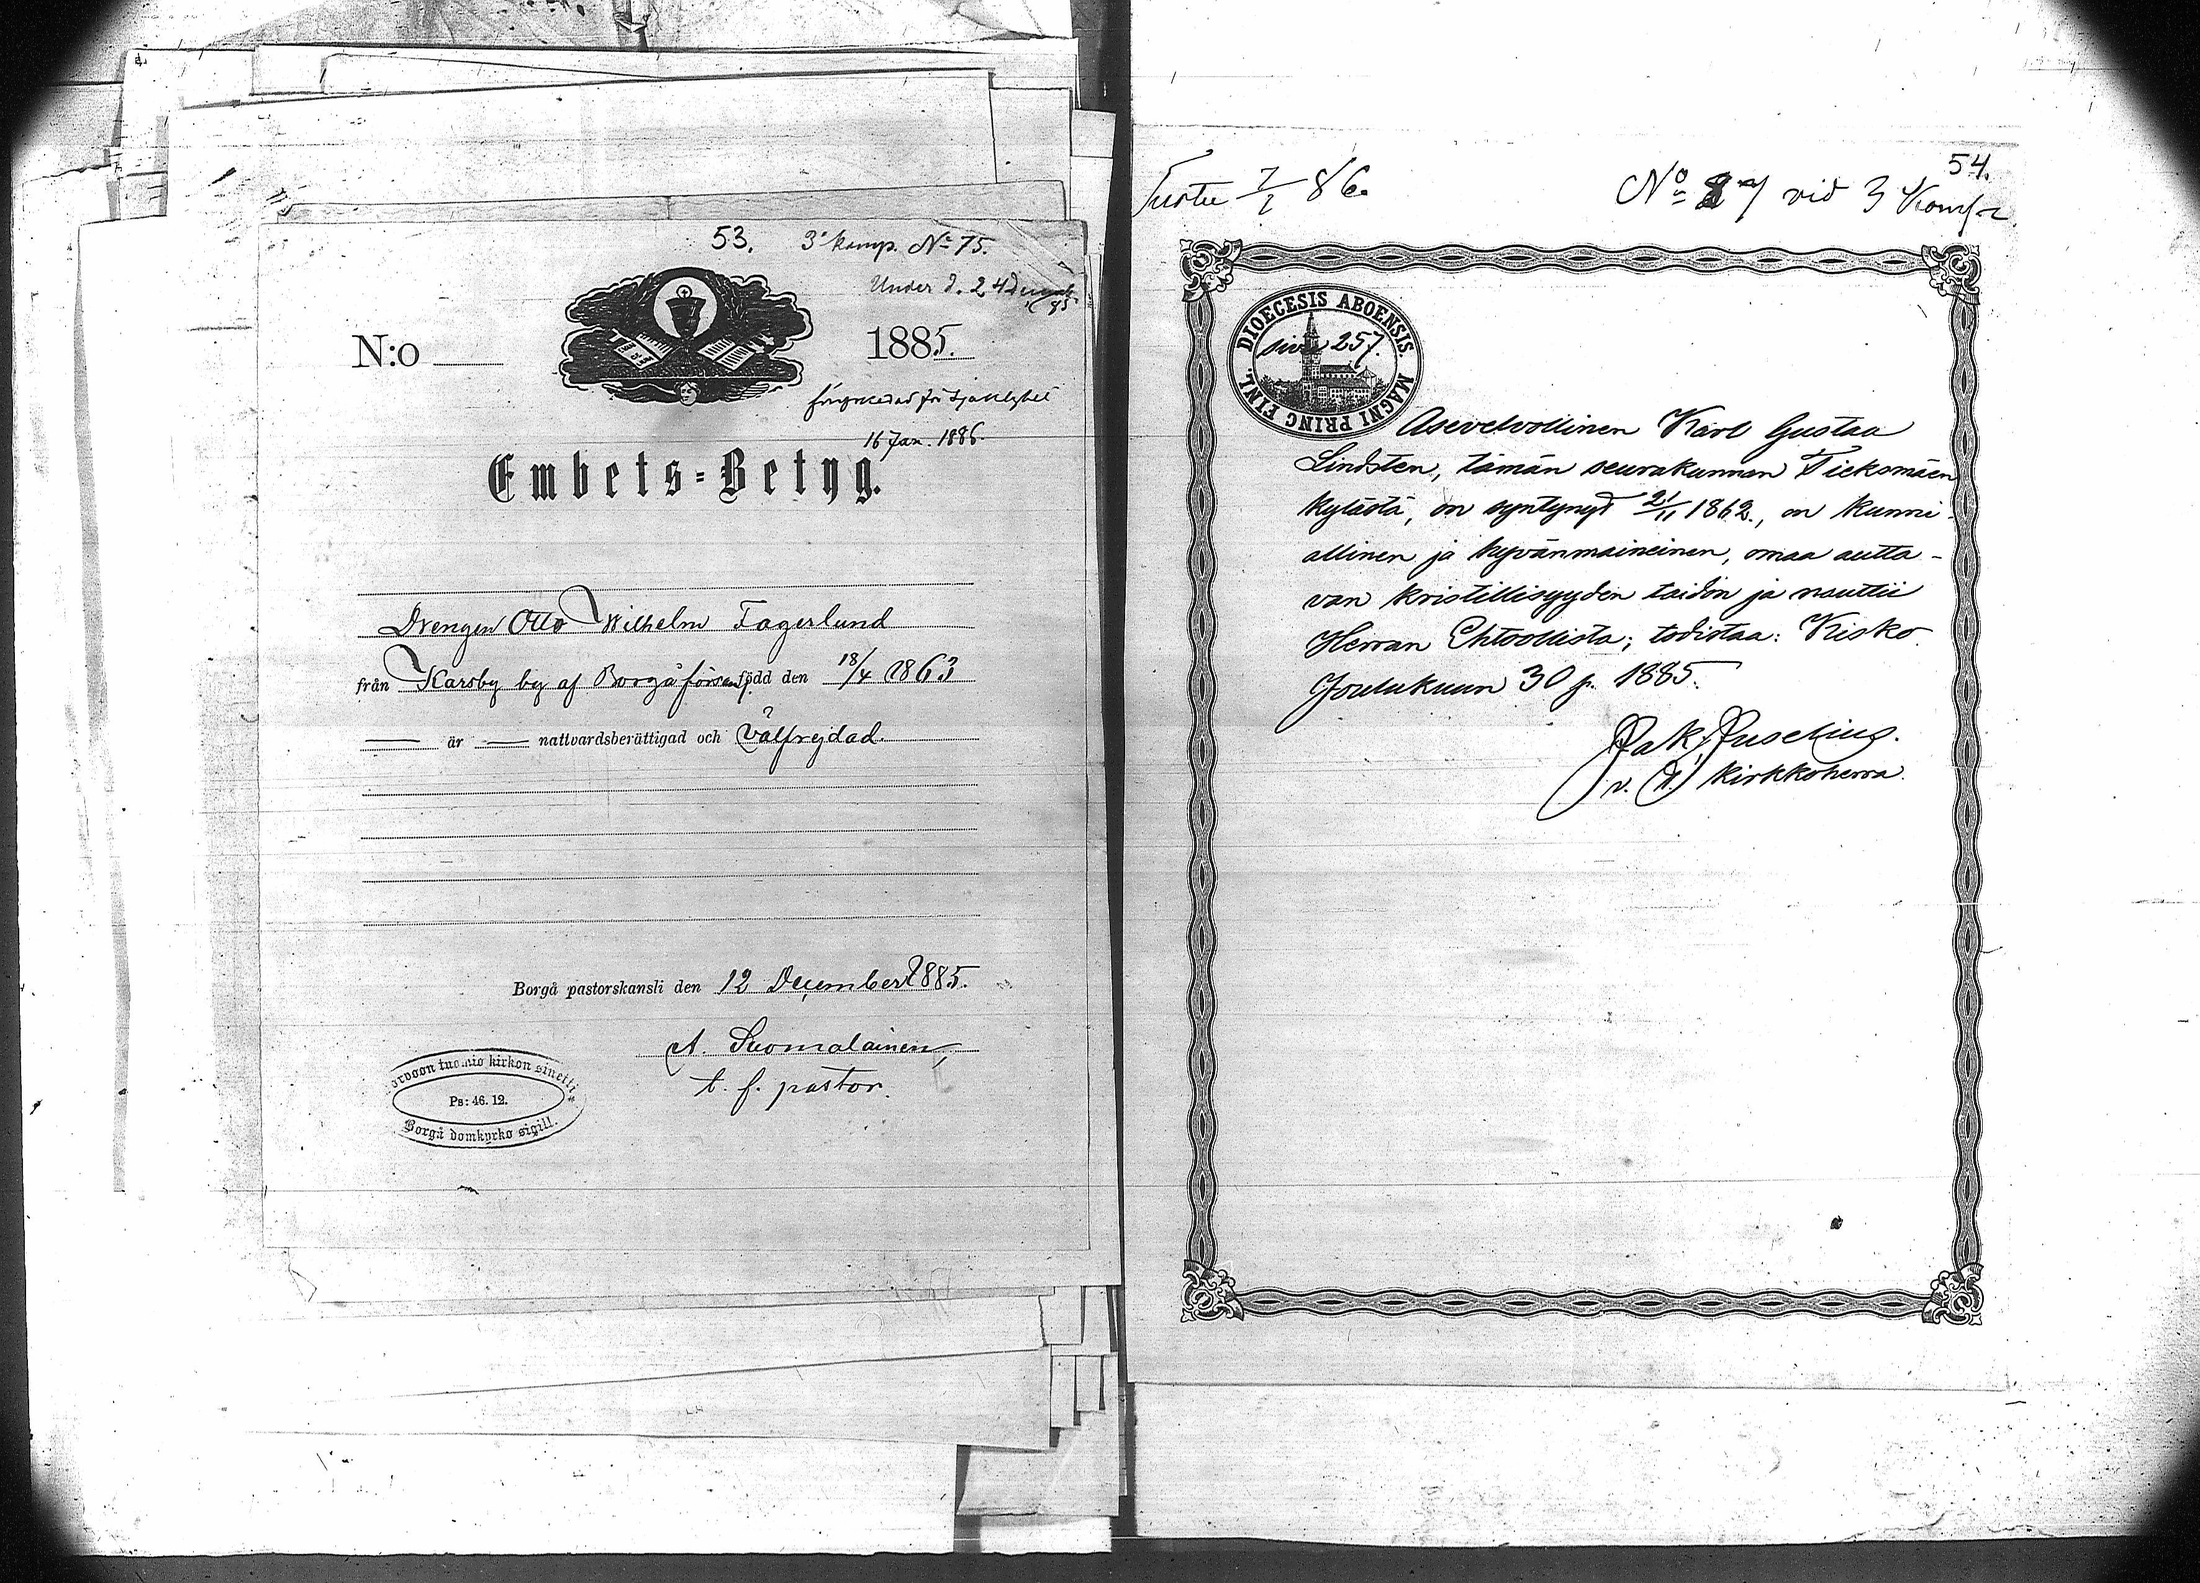 53. 3e komp. No 75.
Under d. 24
N:o 1885.
16 Jan. 1886.
Embets-Betyg.
Drengen Otto Wilhelm Fagerlund
från Karsby by af Borgå förs. född den 18/4 1863
är nattvardsberättigad och välfrejdad.
Borgå pastorskansli den 12 December 1885.
A. Suomalainen,
t. f. pastor.
orvoon tuomio kirkon sinetti
Ps: 46. 12.
Borgå domkyrko sigill.
54.
7/1 86. No 27 vid 3 Komp-
DIOECESIS ABOENSIS. MAGNI PRINC FINL.
sivu 257.
Asevelvollinen Karl Gustaa
Lindsten, tämän seurakunnan Tieksmäen
kylästä, on syntynyt 21/11 1862., on kunni-
allinen ja hyvänmaineinen, omaa autta-
van kristillisyyden taidon ja nauttii
Herran Ehtoollista; todistaa: Kisko
Joulukuun 30 p. 1885.
v. t. kirkkoherra.